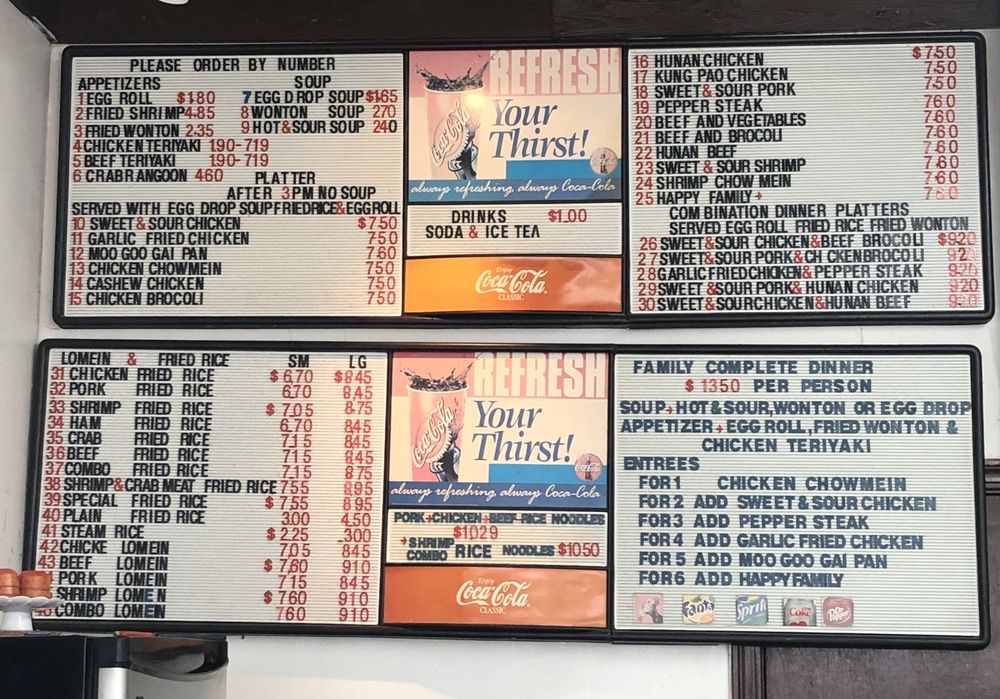 PLEASE ORDER BY NUMBER
APPETIZERS SOUP
1 EGG ROLL $1.80 7 EGG DROP SOUP $1.65
2 FRIED SHRIMP 4.85 8 WONTON SOUP 270
3 FRIED WONTON 2.35 9 HOT & SOUR SOUP 240
4 CHICKEN TERIYAKI 190-719
5 BEEF TERIYAKI 190-719
6 CRAB RANGOON 460 PLATTER
AFTER 3PM NO SOUP
SERVED WITH EGG DROP SOUP FRIED RICE & EGG ROLL
10 SWEET & SOUR CHICKEN $750
11 GARLIC FRIED CHICKEN 750
12 MOO GOO GAI PAN 760
13 CHICKEN CHOWMEIN 750
14 CASHEW CHICKEN 750
15 CHICKEN BROCOLI 750
REFRESH
Your
Thirst!
Coca-Cola
always refreshing, always Coca-Cola
DRINKS $1.00
SODA & ICE TEA
Enjoy
Coca-Cola
CLASSIC
16 HUNAN CHICKEN $750
17 KUNG PAO CHICKEN 750
18 SWEET & SOUR PORK 750
19 PEPPER STEAK 760
20 BEEF AND VEGETABLES 760
21 BEEF AND BROCOLI 760
22 HUNAN BEEF 760
23 SWEET & SOUR SHRIMP 760
24 SHRIMP CHOW MEIN 760
25 HAPPY FAMILY 760
COMBINATION DINNER PLATTERS
SERVED EGG ROLL FRIED RICE FRIED WONTON
26 SWEET & SOUR CHICKEN & BEEF BROCOLI $920
27 SWEET & SOUR PORK & CH CKEN BROCOLI 920
28 GARLIC FRIED CHICKEN & PEPPER STEAK 920
29 SWEET & SOUR PORK & HUNAN CHICKEN 920
30 SWEET & SOUR CHICKEN & HUNAN BEEF 920
LOMEIN & FRIED RICE SM LG
31 CHICKEN FRIED RICE $6.70 $845
32 PORK FRIED RICE 670 845
33 SHRIMP FRIED RICE $7.05 875
34 HAM FRIED RICE 6.70 845
35 CRAB FRIED RICE 715 845
36 BEEF FRIED RICE 715 845
37 COMBO FRIED RICE 715 875
38 SHRIMP & CRAB MEAT FRIED RICE 755 895
39 SPECIAL FRIED RICE $7.55 895
40 PLAIN FRIED RICE 3.00 4.50
41 STEAM RICE $2.25 .300
42 CHICKE LOMEIN 705 845
43 BEEF LOMEIN $7.60 910
PORK LOMEIN 715 845
SHRIMP LOME N $760 910
COMBO LOMEIN 760 910
REFRESH
Your
Thirst!
Coca-Cola
always refreshing, always Coca-Cola
PORK CHICKEN BEEF RICE NOODLES
$1029
SHRIMP
COMBO RICE NOODLES $1050
Enjoy
Coca-Cola
CLASSIC
FAMILY COMPLETE DINNER
$1350 PER PERSON
SOUP HOT & SOUR, WONTON OR EGG DROP
APPETIZER EGG ROLL, FRIED WONTON &
CHICKEN TERIYAKI
ENTREES
FOR 1 CHICKEN CHOWMEIN
FOR 2 ADD SWEET & SOUR CHICKEN
FOR 3 ADD PEPPER STEAK
FOR 4 ADD GARLIC FRIED CHICKEN
FOR 5 ADD MOO GOO GAI PAN
FOR 6 ADD HAPPY FAMILY
Fanta Sprite Coke Dr Pepper